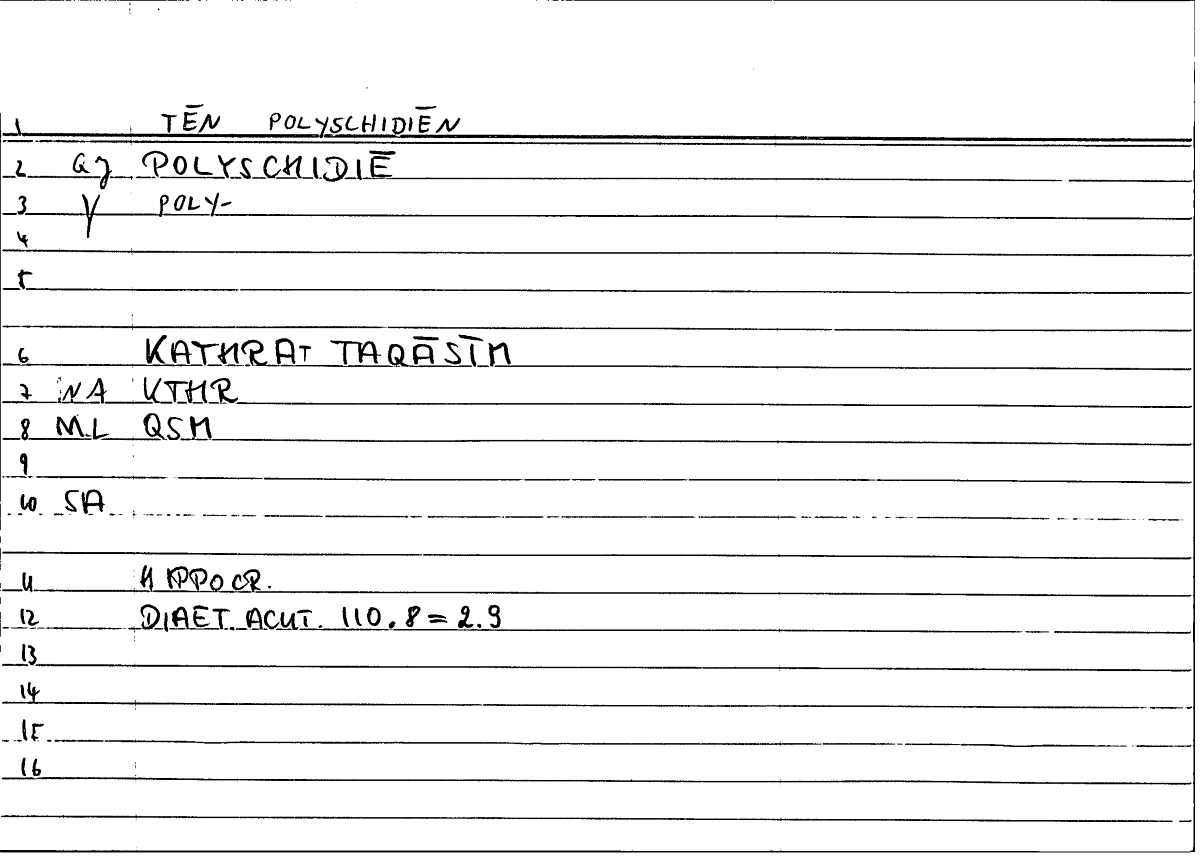 1 TĒN POLYSCHIDIĒN
2 POLYSCHIDIĒ
3 POLY-
4
5
6 KATHRAT TAQĀSĪM
7 NA KTHR
8 ML QSM
9
10 SA
11 HIPPOCR.
12 DIAET. ACUT. 110.8 = 2.9
13
14
15
16